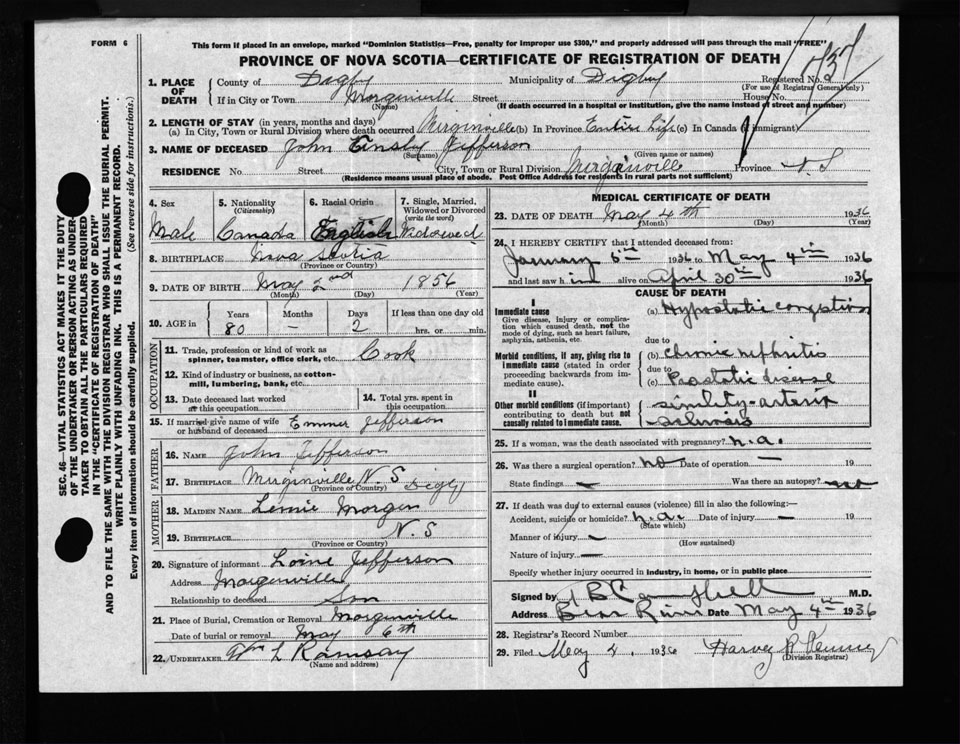 FORM 6
This form if placed in an envelope, marked "Dominion Statistics—Free, penalty for improper use $300," and properly addressed will pass through the mail "FREE"
PROVINCE OF NOVA SCOTIA—CERTIFICATE OF REGISTRATION OF DEATH
1. PLACE OF DEATH
County of Digby Municipality of Digby Registered No.
(For use of Registrar General only)
If in City or Town Morginville Street House No.
(Name) (If death occurred in a hospital or institution, give the name instead of street and number)
2. LENGTH OF STAY (in years, months and days)
(a) In City, Town or Rural Division where death occurred Murginville (b) In Province Entire Life (c) In Canada (if immigrant)
3. NAME OF DECEASED John Jefferson
(Surname) (Given name or names)
RESIDENCE No. Street City, Town or Rural Division Murginville Province N.S
(Residence means usual place of abode. Post Office Address for residents in rural parts not sufficient)
SEC. 46—VITAL STATISTICS ACT MAKES IT THE DUTY
OF THE UNDERTAKER OR PERSON ACTING AS UNDER-
TAKER TO OBTAIN ALL THE PARTICULARS REQUIRED
IN THE "CERTIFICATE OF REGISTRATION OF DEATH"
AND TO FILE THE SAME WITH THE DIVISION REGISTRAR WHO SHALL ISSUE THE BURIAL PERMIT.
WRITE PLAINLY WITH UNFADING INK. THIS IS A PERMANENT RECORD.
Every item of information should be carefully supplied. (See reverse side for instructions.)
4. Sex Male
5. Nationality (Citizenship) Canada
6. Racial Origin English
7. Single, Married, Widowed or Divorced (write the word) Widowed
8. BIRTHPLACE Nova Scotia
(Province or Country)
9. DATE OF BIRTH May 2nd 1856
(Month) (Day) (Year)
10. AGE in Years 80 Months – Days 2 If less than one day old hrs. or min.
OCCUPATION
11. Trade, profession or kind of work as spinner, teamster, office clerk, etc. Cook
12. Kind of industry or business, as cotton-mill, lumbering, bank, etc.
13. Date deceased last worked at this occupation
14. Total yrs. spent in this occupation
15. If married give name of wife or husband of deceased Emmer Jefferson
FATHER
16. NAME John Jefferson
17. BIRTHPLACE Murginville N.S Digby
(Province or Country)
MOTHER
18. MAIDEN NAME Morgen
19. BIRTHPLACE N.S
(Province or Country)
20. Signature of informant Jefferson
Address Morgenville
Relationship to deceased Son
21. Place of Burial, Cremation or Removal Morginville
Date of burial or removal May 6th
22. UNDERTAKER Wm L Ramsay
(Name and address)
MEDICAL CERTIFICATE OF DEATH
23. DATE OF DEATH May 4th 1936
(Month) (Day) (Year)
24. I HEREBY CERTIFY that I attended deceased from:
January 1936 to May 4th 1936
and last saw him alive on April 30th 1936
CAUSE OF DEATH
I
Immediate cause
Give disease, injury or complication which caused death, not the mode of dying, such as heart failure, asphyxia, asthenia, etc.
(a) Hypostatic congestion
due to
Morbid conditions, if any, giving rise to immediate cause (stated in order proceeding backwards from immediate cause).
(b) Chronic nephritis
due to
(c) Prostatic disease
II
Other morbid conditions (if important) contributing to death but not causally related to immediate cause.
senility - arterio
sclerosis
25. If a woman, was the death associated with pregnancy? n.a.
26. Was there a surgical operation? no Date of operation – 19
State findings – Was there an autopsy? no
27. If death was due to external causes (violence) fill in also the following:—
Accident, suicide or homicide? n.a. Date of injury – 19
(State which)
Manner of injury –
(How sustained)
Nature of injury –
Specify whether injury occurred in industry, in home, or in public place
Signed by Campbell M.D.
Address Bear River Date May 4th 1936
28. Registrar's Record Number
29. Filed May 4, 1936 Harvey
(Division Registrar)